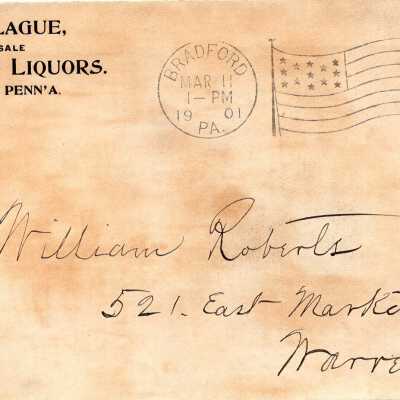 LAGUE,
SALE
LIQUORS.
PENN'A.
BRADFORD
MAR 11
1-PM
1901
PA.
William Roberts
521. East Marke
Warre